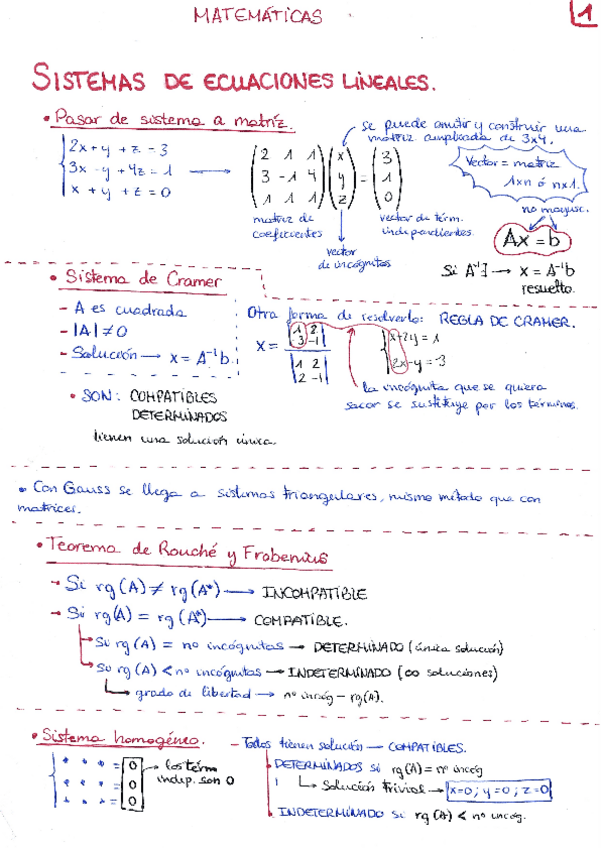 MATEMÁTICAS
1
SISTEMAS DE ECUACIONES LINEALES.
• Pasar de sistema a matríz.
2x + y + z = 3
3x - y + 4z = 1
x + y + z = 0
(2 1 1) (x) = (3)
(3 -1 4) (y) (1)
(1 1 1) (z) (0)
matriz de coeficientes
vector de incógnitas
vector de térm. independientes
se puede omitir y construir una
matriz ampliada de 3x4.
Vector = matriz
1xn ó nx1.
no mayusc.
Ax = b
Si A⁻¹∃ → x = A⁻¹b
resuelto.
• Sistema de Cramer
- A es cuadrada
- |A| ≠ 0
- Solución → x = A⁻¹b.
• SON: COMPATIBLES
DETERMINADOS
tienen una solución única.
Otra forma de resolverlo: REGLA DE CRAMER.
x = |1 2|
|3 -1|
|1 2|
|2 -1|
x+2y = 1
2x-y = 3
la incógnita que se quiera
sacar se sustituye por los términos.
• Con Gauss se llega a sistemas triangulares, mismo método que con
matrices.
• Teorema de Rouché y Frobenius
- Si rg(A) ≠ rg(A*) → INCOMPATIBLE
- Si rg(A) = rg(A*) → COMPATIBLE.
Si rg(A) = nº incógnitas → DETERMINADO (única solución)
Si rg(A) < nº incógnitas → INDETERMINADO (∞ soluciones)
grado de libertad → nº incóg - rg(A).
• Sistema homogéneo.
= 0
= 0
= 0
→ los térm
indep. son 0
- Todos tienen solución — COMPATIBLES.
DETERMINADOS si rg(A) = nº incóg
Solución Trivial → x=0; y=0; z=0
INDETERMINADO si rg(A) < nº incóg.